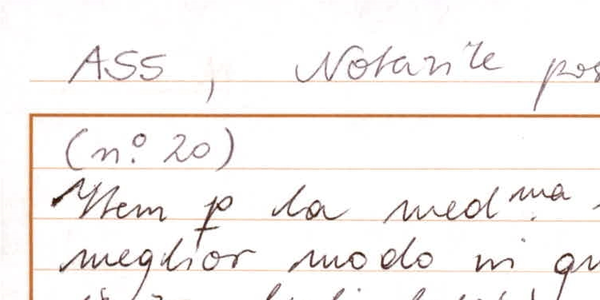 ASS, Notarile pos
(n.º 20)
Item p la med.ma
meglior modo in qu